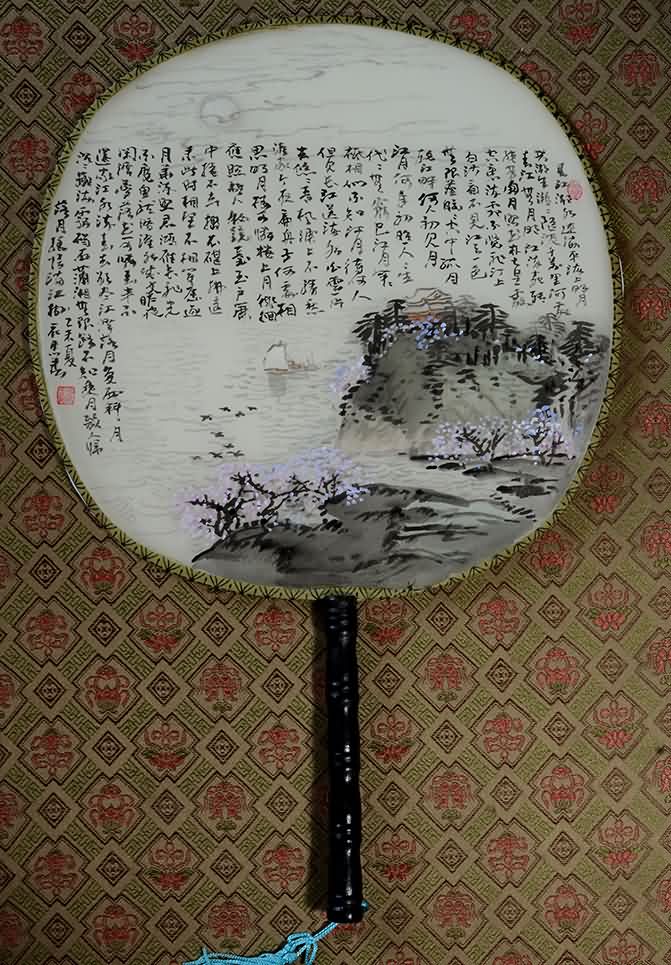 春江潮水连海平海上明月
共潮生滟滟随波千万里何处
春江无月明江流宛转
绕芳甸月照花林皆似霰
空里流霜不觉飞汀上
白沙看不见江天一色
无纤尘皎皎空中孤月
轮江畔何人初见月
江月何年初照人人生
代代无穷已江月年
祗相似不知江月待何人
但见长江送流水白云一片
去悠悠青枫浦上不胜愁
谁家今夜扁舟子何处相
思明月楼可怜楼上月徘徊
应照离人妆镜台玉户帘
中卷不去捣衣砧上拂还
来此时相望不相闻愿逐
月华流照君鸿雁长飞光
不度鱼龙潜跃水成文昨夜
闲潭梦落花可怜春半不
还家江水流春去欲尽江潭落月复西斜斜月
沉沉藏海雾碣石潇湘无限路不知乘月几人归
落月摇情满江树 乙未夏